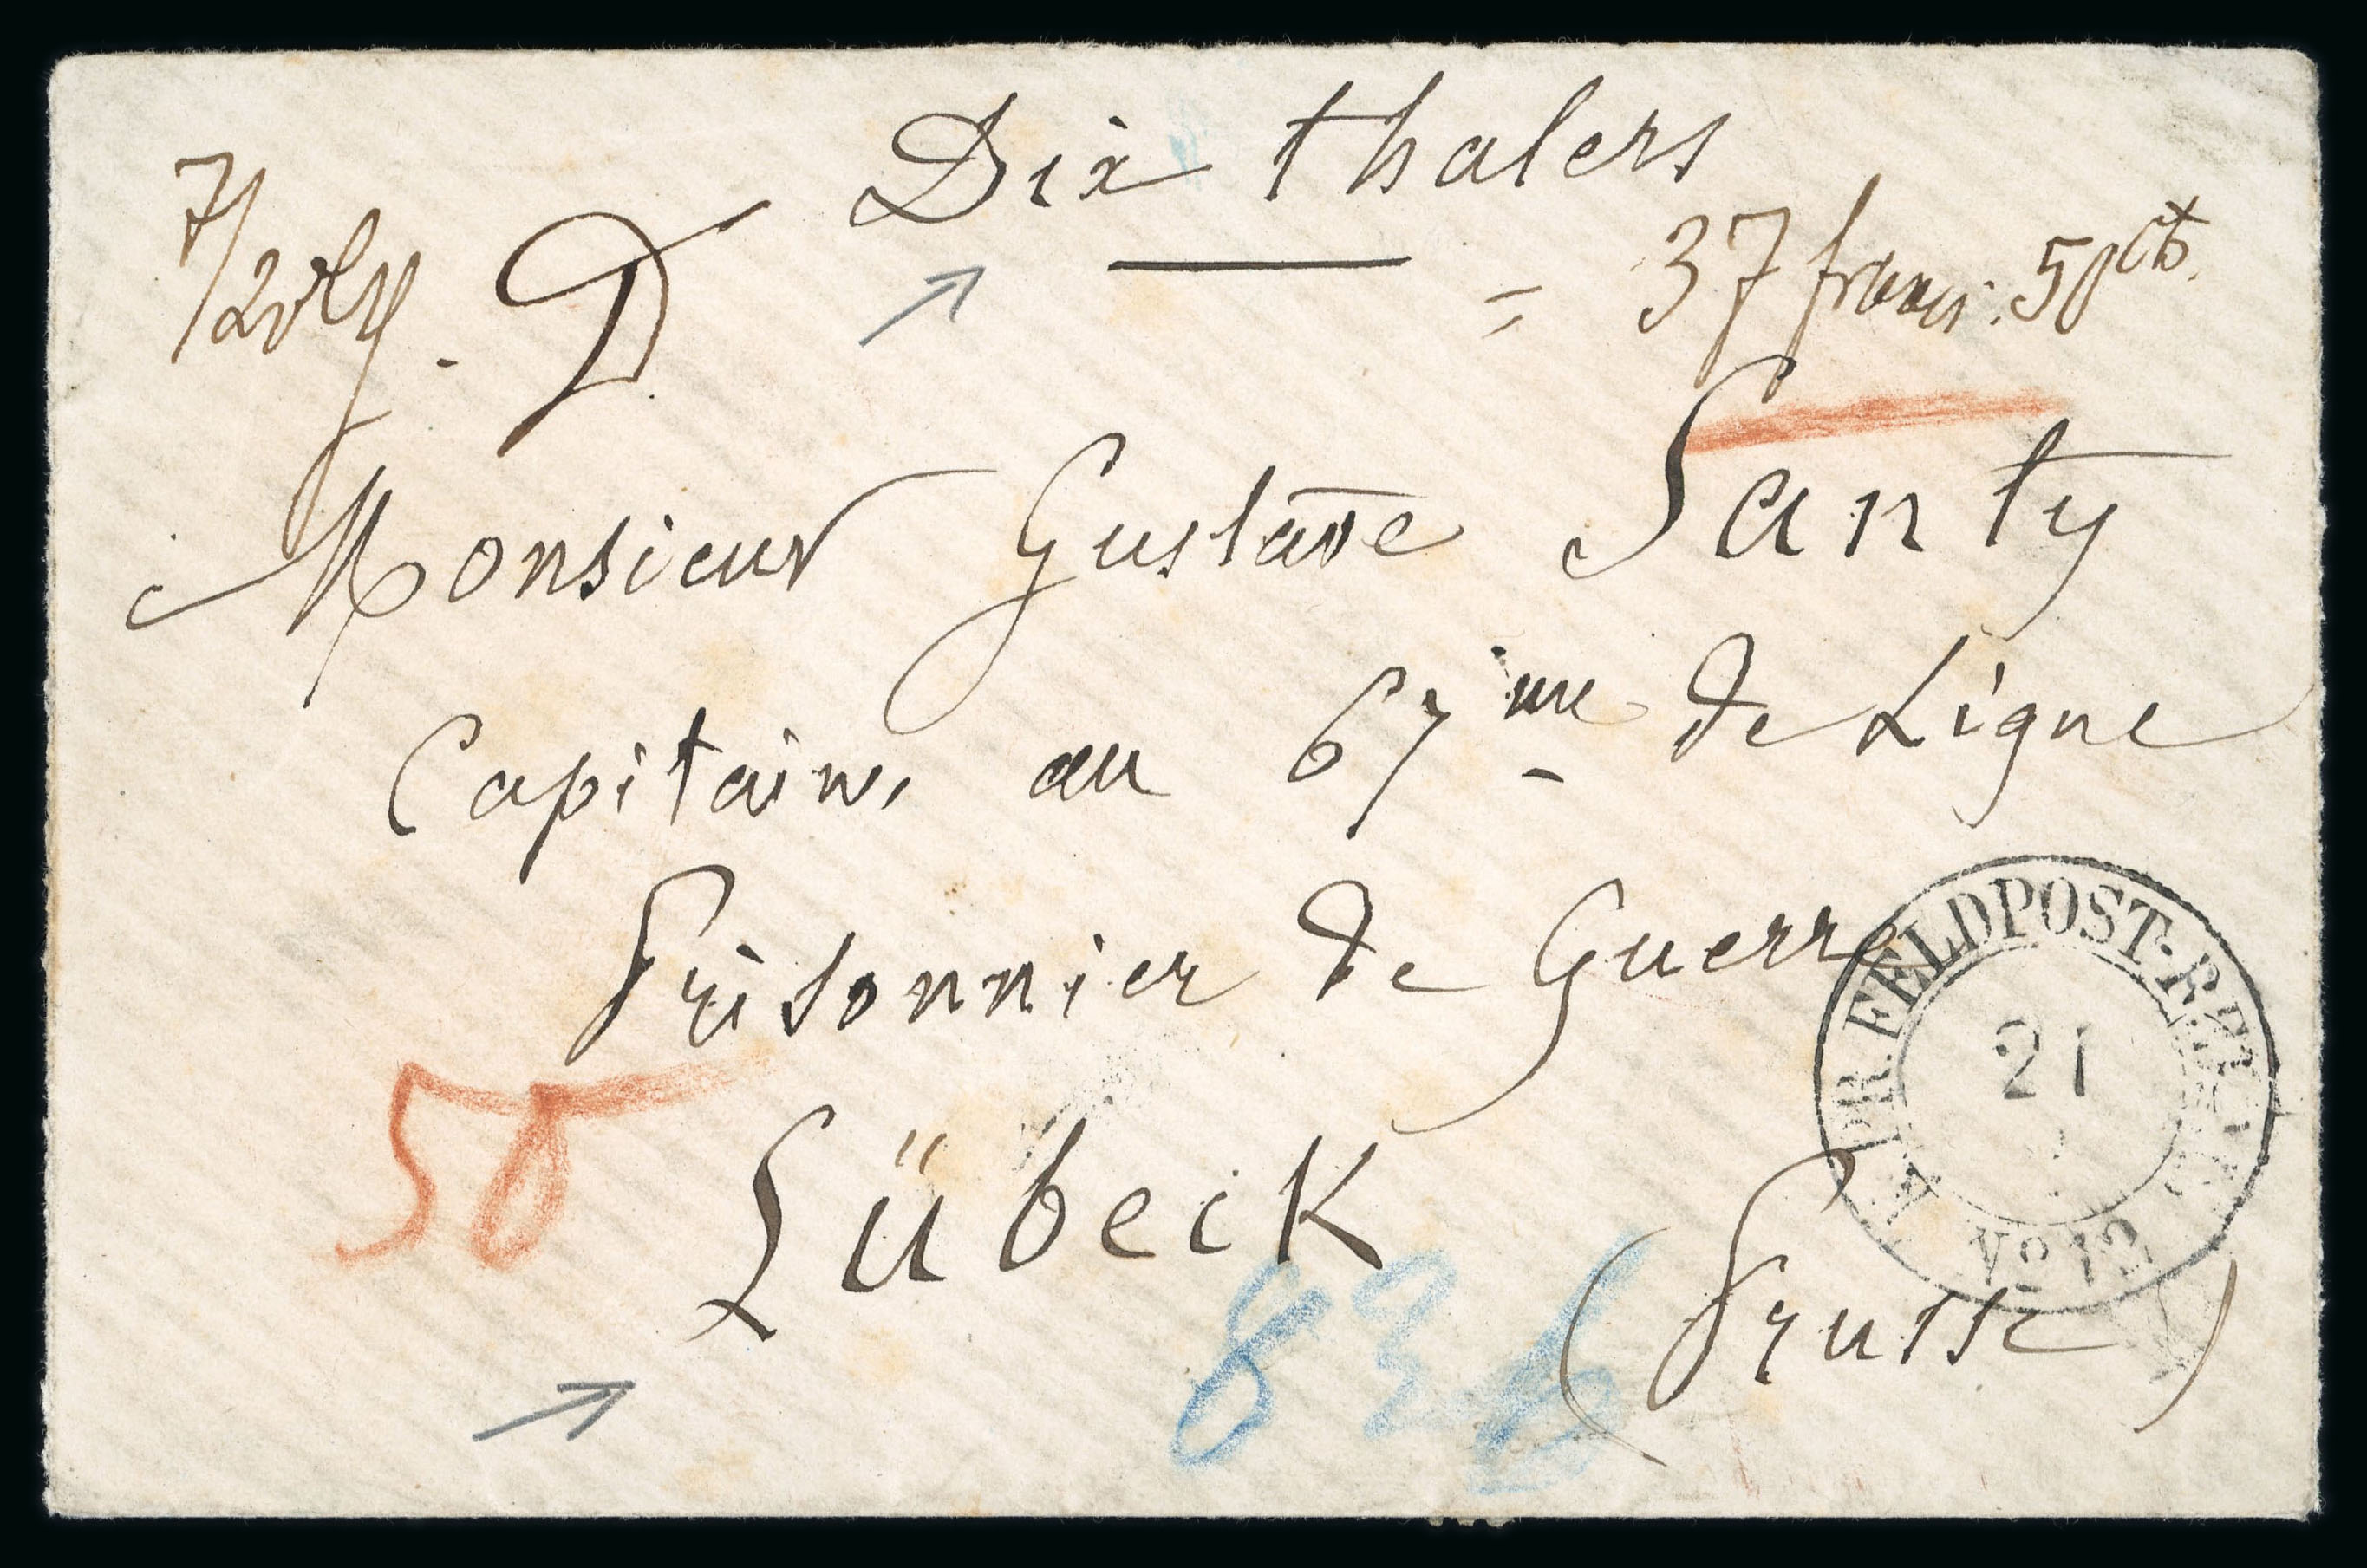 Dix thalers
= 37 francs. 50 cts.
Monsieur Gustave Santy
Capitaine au 67me de Ligne
Prisonnier de Guerre
50
Lübeck
(Prusse)
K. PR. FELDPOST-
21
No 12